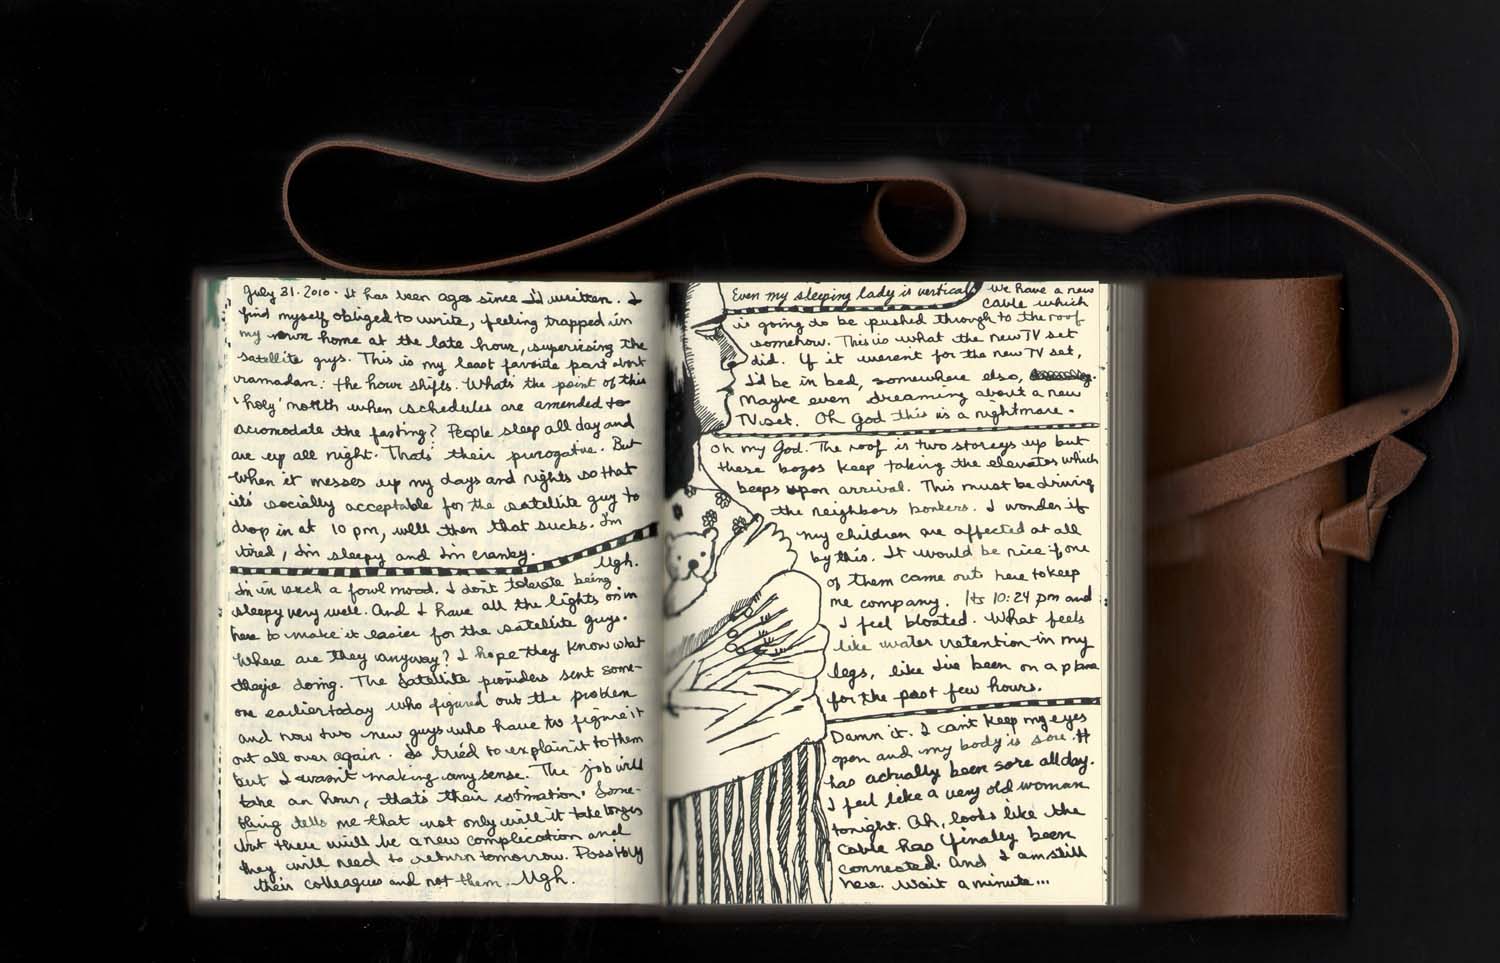 July 31. 2010. It has been ages since I'd written. I
find myself obliged to write, feeling trapped in
my own home at the late hour, supervising the
satellite guys. This is my least favorite part about
ramadan: the hour shifts. What's the point of this
'holy' month when schedules are amended to
acomodate the fasting? People sleep all day and
are up all night. Thats their purogative. But
when it messes up my days and nights so that
it's socially acceptable for the satellite guy to
drop in at 10 pm, well then that sucks. I'm
tired, I'm sleepy and I'm cranky.
Ugh.
I'm in such a fowl mood. I don't tolerate being
sleepy very well. And I have all the lights on in
here to make it easier for the satellite guys.
Where are they anyway? I hope they know what
they're doing. The satellite providers sent some-
one earlier today who figured out the problem
and now two new guys who have to figure it
out all over again. I's tried to explain it to them
but I wasn't making any sense. The job will
take an hour, that's their estimation. Some-
thing tells me that not only will it take longer
but there will be a new complication and
they will need to return tomorrow. Possibly
their colleagues and not them. Ugh.
Even my sleeping lady is vertical.
We have a new
cable which
is going to be pushed through to the roof
somehow. This is what the new TV set
did. If it weren't for the new TV set,
I'd be in bed, somewhere else,
Maybe even dreaming about a new
TV set. Oh God this is a nightmare.
Oh my God. The roof is two storeys up but
these bozos keep taking the elevator which
beeps upon arrival. This must be driving
the neighbors bonkers. I wonder if
my children are affected at all
by this. It would be nice if one
of them came out here to keep
me company. It's 10:24 pm and
I feel bloated. What feels
like water retention in my
legs, like I've been on a plane
for the past few hours.
Damn it. I can't keep my eyes
open and my body is sore. It
has actually been sore all day.
I feel like a very old woman
tonight. Ah, looks like the
cable has finally been
connected. And I am still
here. Wait a minute...